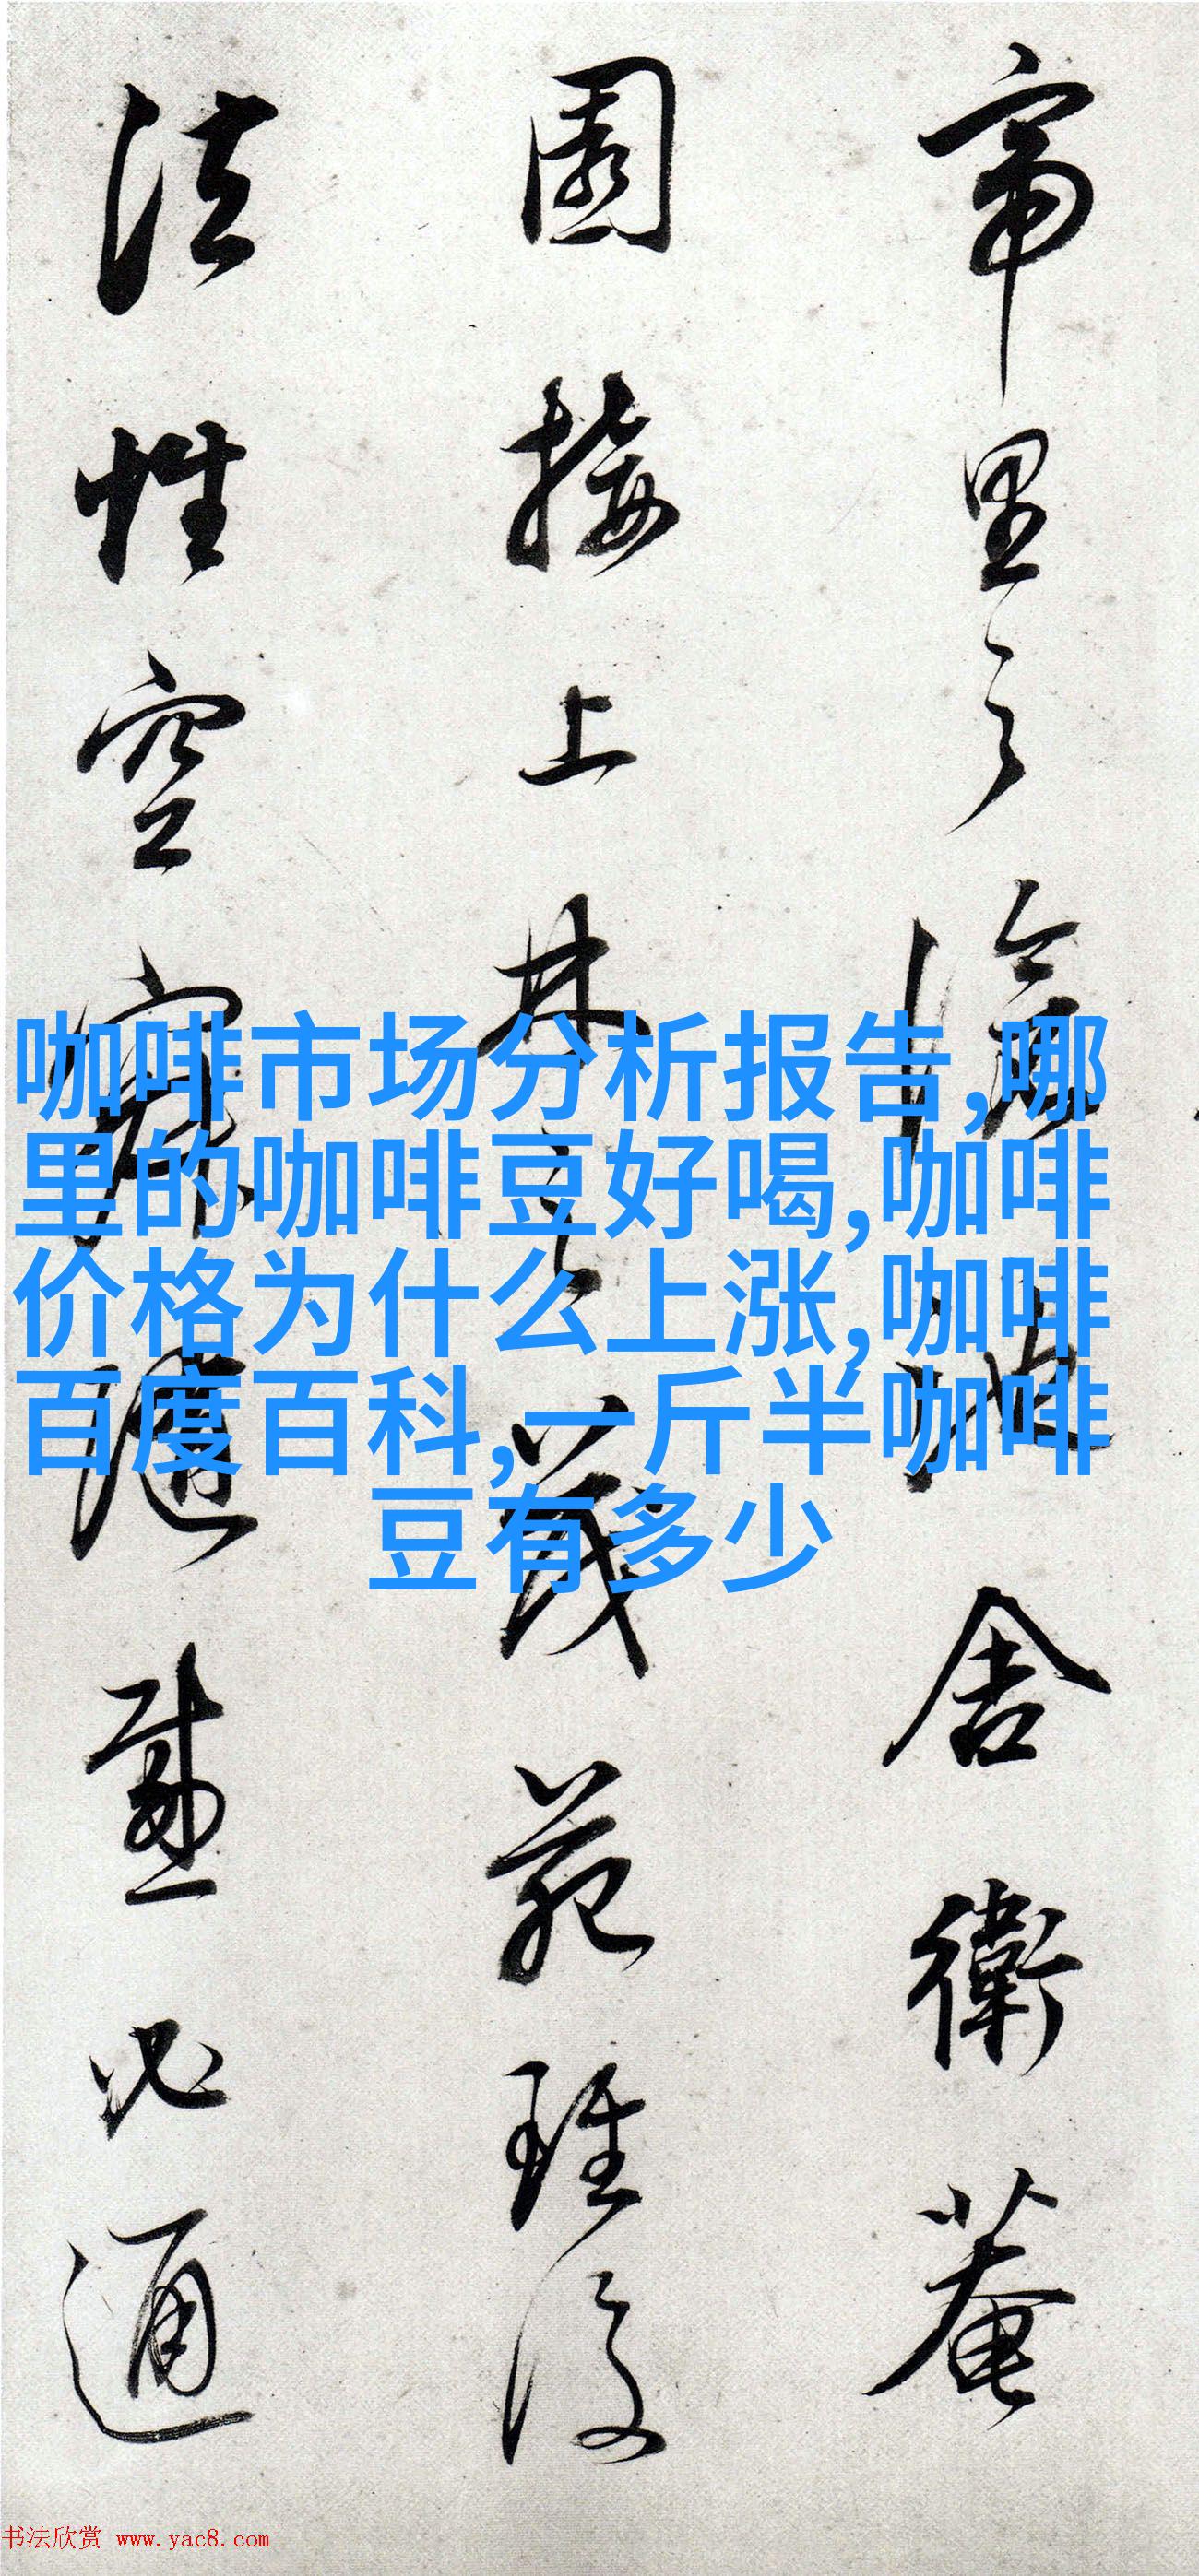 帝里之滄池舍衛菴
園接上林之茂苑理後
法性空寂隨感必通
咖啡市场分析报告,哪
里的咖啡豆好喝,咖啡
价格为什么上涨,咖啡
百度百科,一斤半咖啡
豆有多少
书法欣赏 www.yac8.com